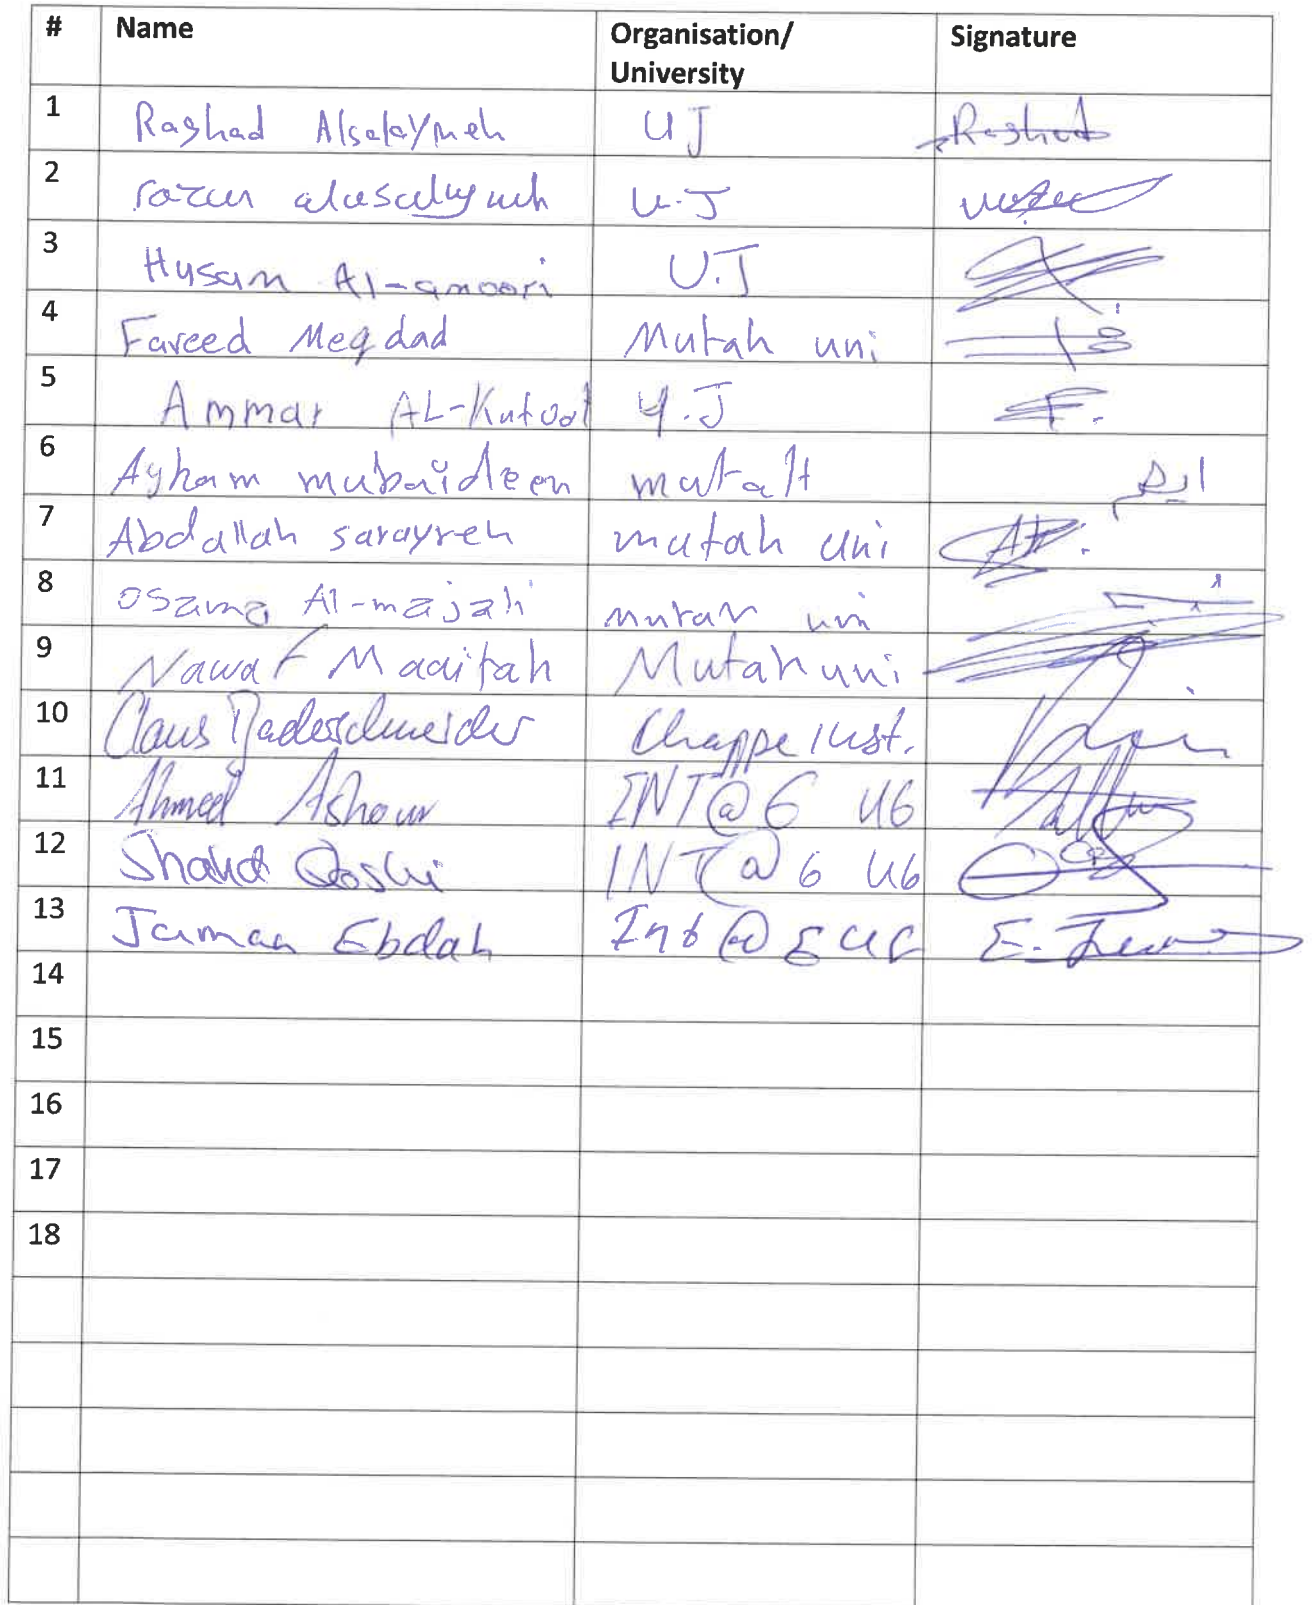 # Name Organisation/ University Signature
1 Rashad Alsalaymeh UJ Rashad
2 razan alasalaymeh U.J
3 Husam Al-amoori U.J
4 Fareed Meqdad Mutah uni
5 Ammar AL-Kutool U.J
6 Ayham mubaideen mutah ايهم
7 Abdallah sarayreh mutah uni
8 osama Al-majali mutah uni
9 Nawaf Maaitah Mutah uni
10 Claus Chappe Inst.
11 Ahmed Ashour INT@E UG
12 Shahd INT@E UG
13 Jumana Ebdah Int@E UG
14
15
16
17
18